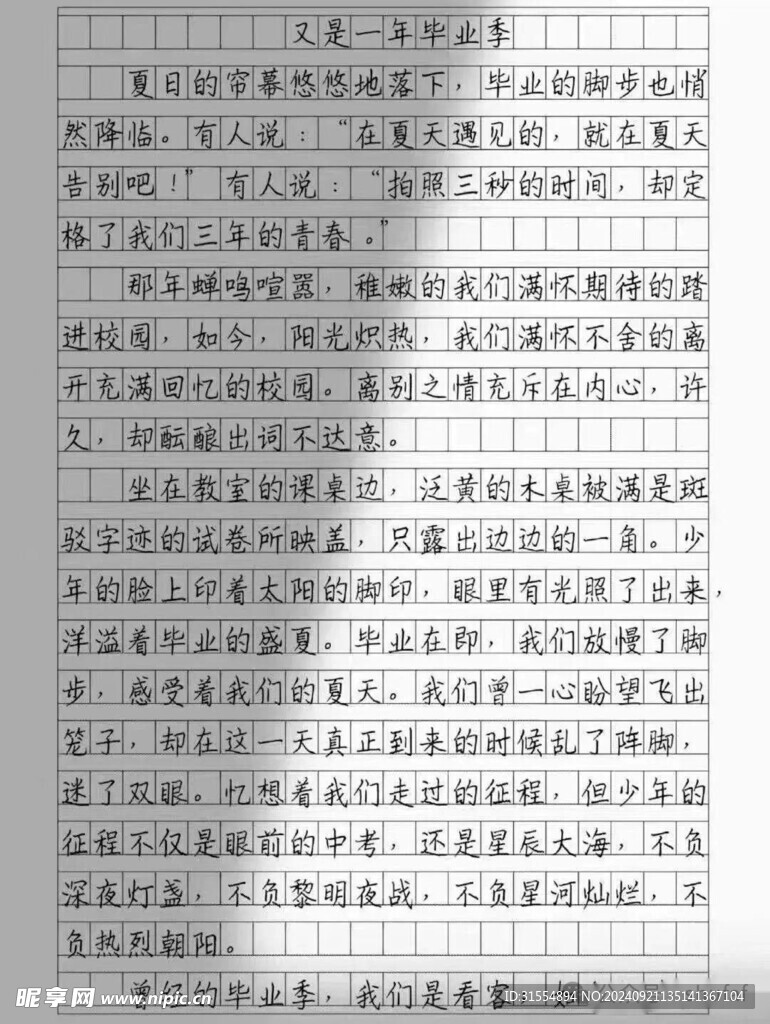 又是一年毕业季
夏日的帘幕悠悠地落下，毕业的脚步也悄
然降临。有人说：“在夏天遇见的，就在夏天
告别吧！”有人说：“拍照三秒的时间，却定
格了我们三年的青春。”
那年蝉鸣喧嚣，稚嫩的我们满怀期待的踏
进校园，如今，阳光炽热，我们满怀不舍的离
开充满回忆的校园。离别之情充斥在内心，许
久，却酝酿出词不达意。
坐在教室的课桌边，泛黄的木桌被满是斑
驳字迹的试卷所映盖，只露出边边的一角。少
年的脸上印着太阳的脚印，眼里有光照了出来，
洋溢着毕业的盛夏。毕业在即，我们放慢了脚
步，感受着我们的夏天。我们曾一心盼望飞出
笼子，却在这一天真正到来的时候乱了阵脚，
迷了双眼。忆想着我们走过的征程，但少年的
征程不仅是眼前的中考，还是星辰大海，不负
深夜灯盏，不负黎明夜战，不负星河灿烂，不
负热烈朝阳。
曾经的毕业季，我们是看客
昵享网 www.nipic.cn
ID:31554894 NO:20240921135141367104